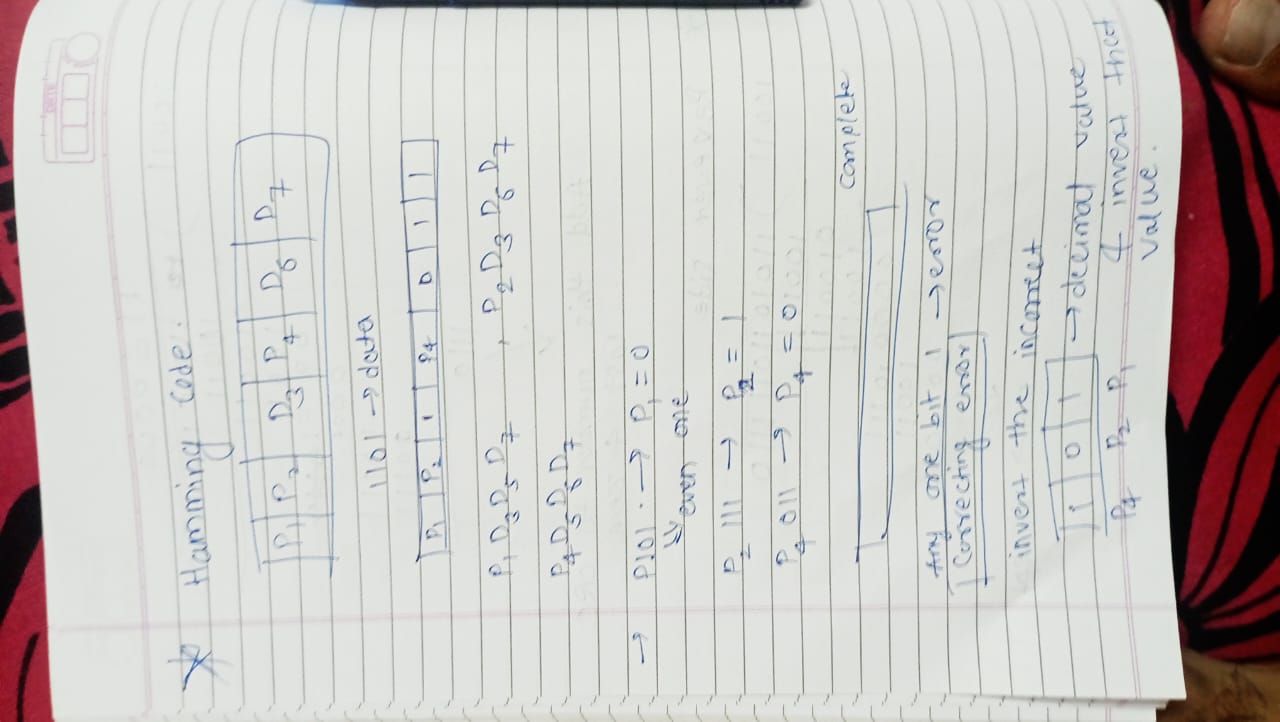 Hamming Code.
P1 | P2 | D3 | P4 | D6 | D7
1101 → data
P1 | P2 | 1 | P4 | 0 | 1 | 1
P1 D3 D5 D7 , P2 D3 D6 D7
P4 D5 D6 D7
→ P101 . → P1 = 0
even one
P2 111 → P2 = 1
P4 011 → P4 = 0
complete
Any one bit 1 → error
Correcting error
invert the incorrect
1 | 0 | 1 → decimal value
P4 P2 P1 & invert that
value.